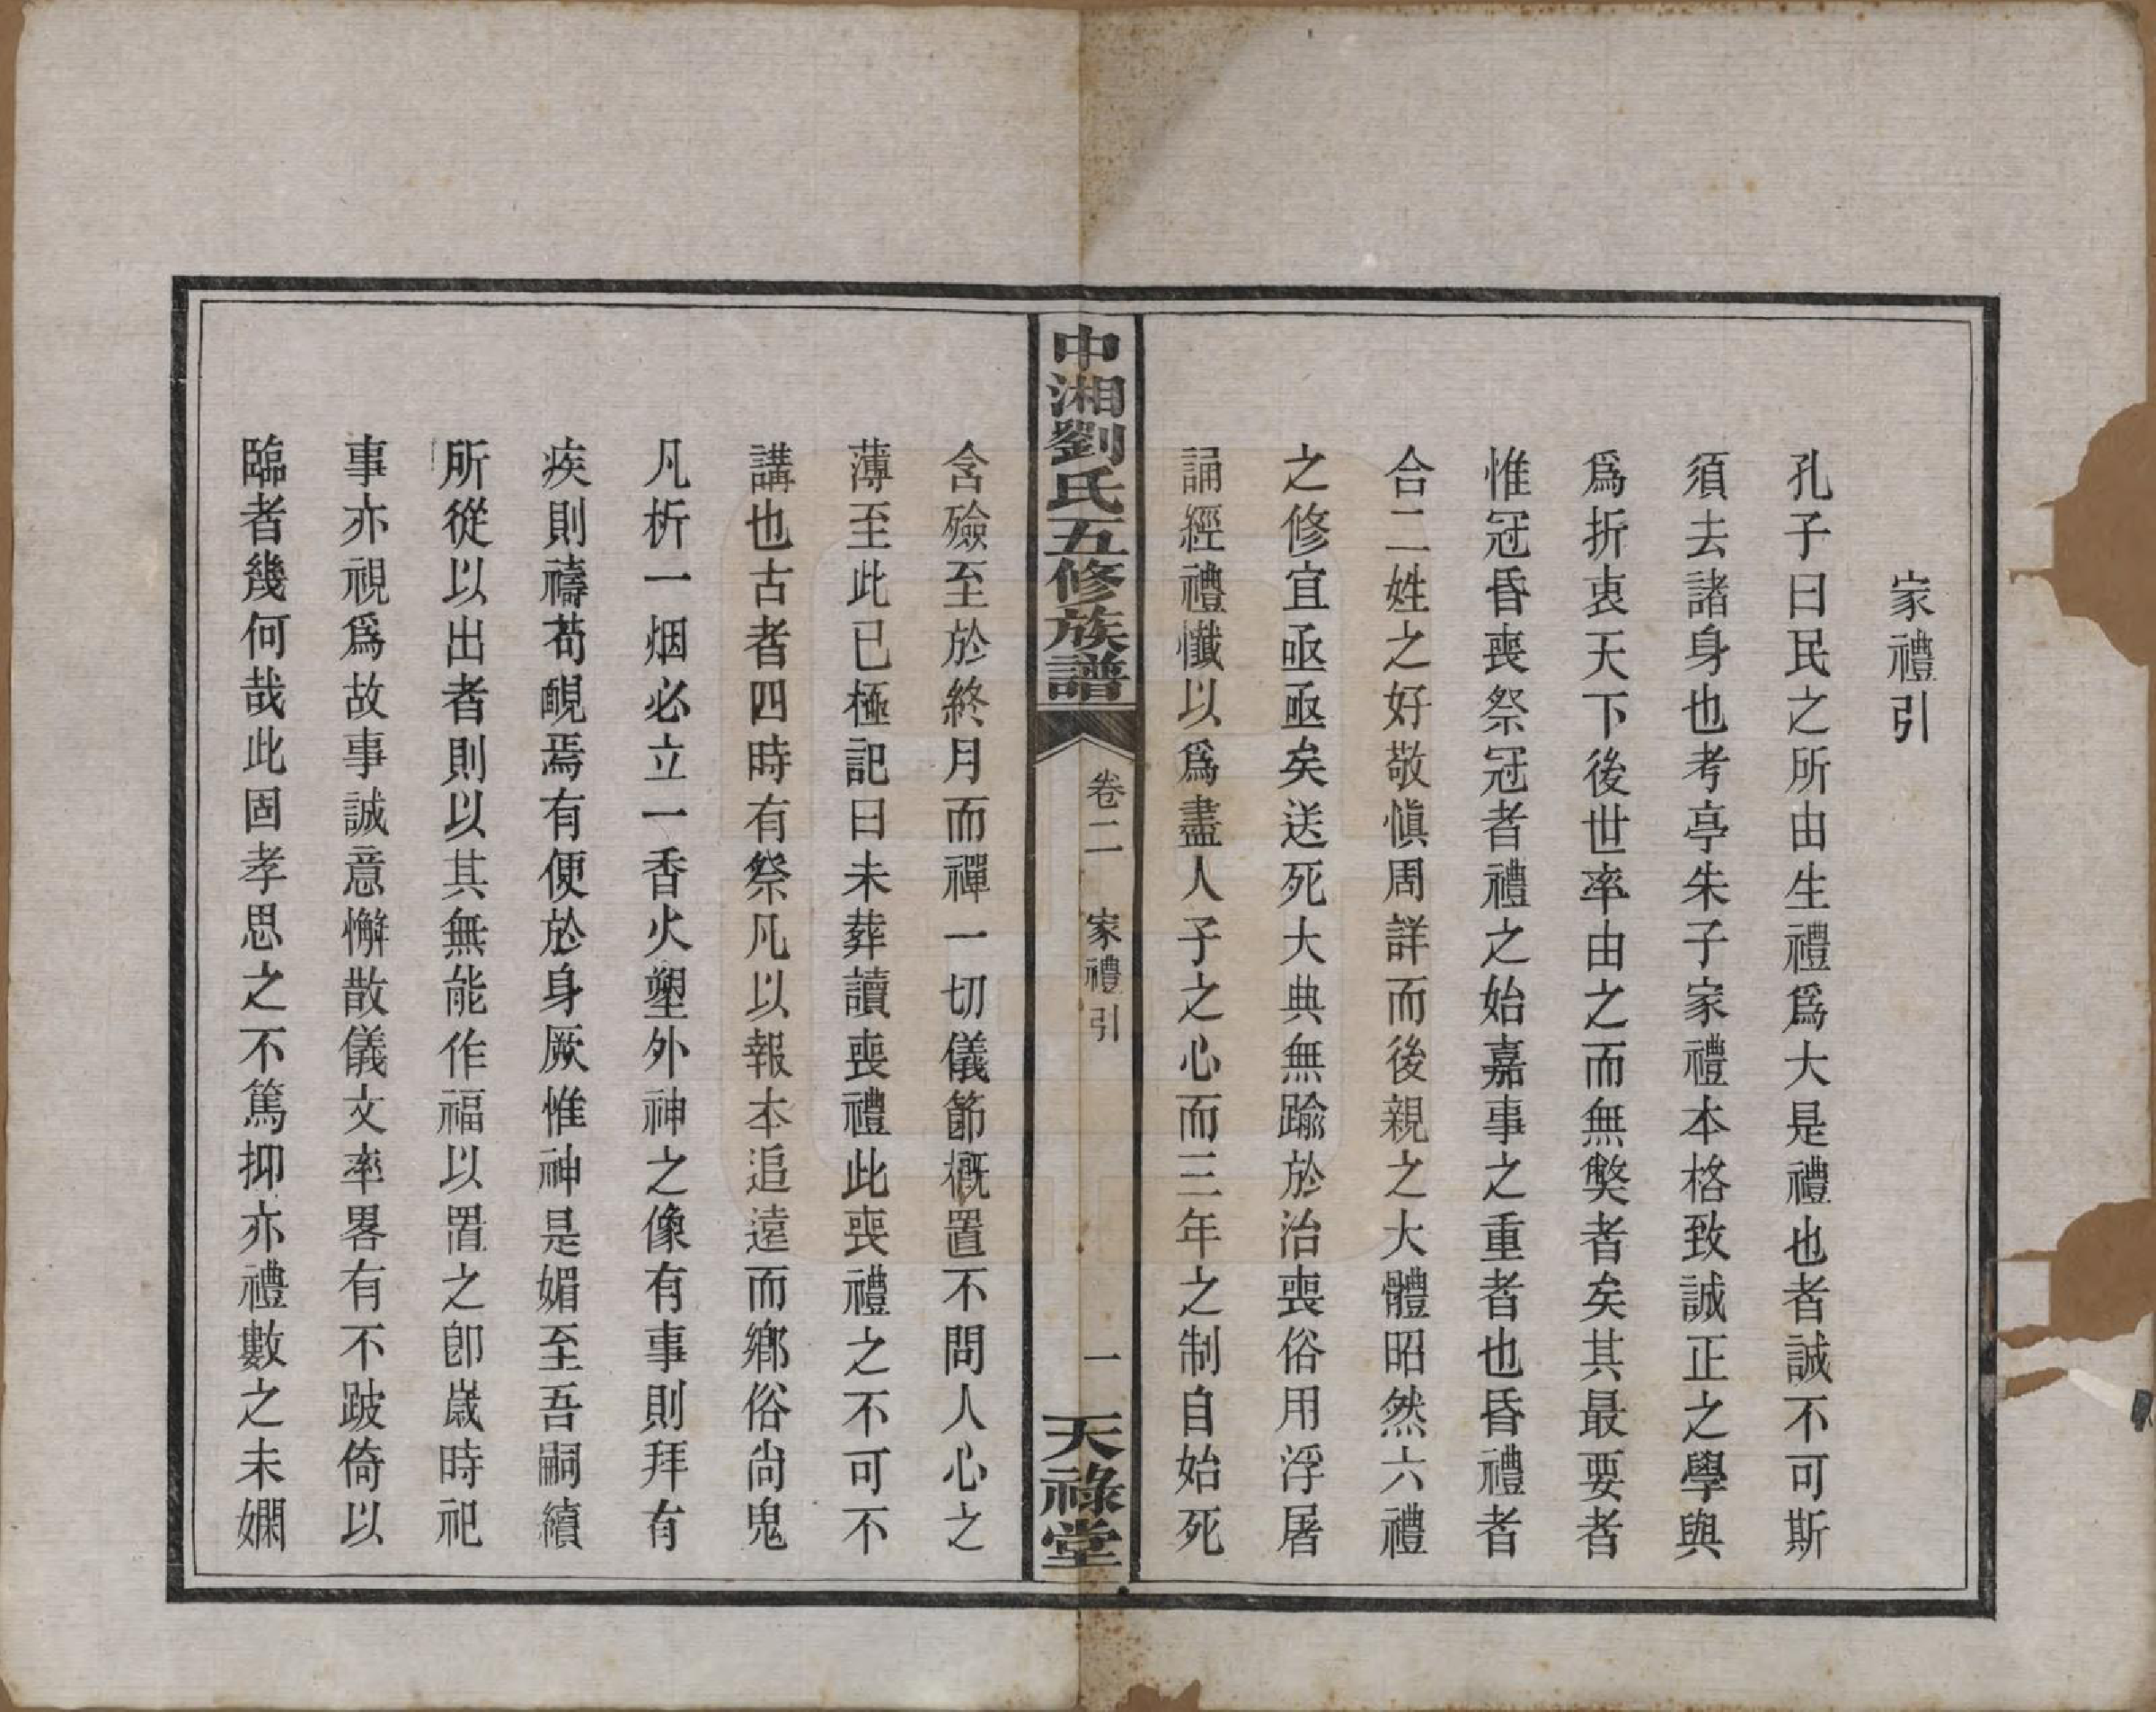 家禮引
孔子曰民之所由生禮爲大是禮也者誠不可斯
須去諸身也考亭朱子家禮本格致誠正之學與
爲折衷天下後世率由之而無獘者矣其最要者
惟冠昏喪祭冠者禮之始嘉事之重者也昏禮者
合二姓之好敬愼周詳而後親之大體昭然六禮
之修宜亟亟矣送死大典無踰於治喪俗用浮屠
誦經禮懺以爲盡人子之心而三年之制自始死
中湘劉氏五修族譜
卷二
家禮引
一
天祿堂
含殮至於終月而禪一切儀節槪置不問人心之
薄至此已極記曰未葬讀喪禮此喪禮之不可不
講也古者四時有祭凡以報本追遠而鄕俗尙鬼
凡析一烟必立一香火塑外神之像有事則拜有
疾則禱苟覥焉有便於身厥惟神是媚至吾嗣續
所從以出者則以其無能作福以置之卽嵗時祀
事亦視爲故事誠意懈散儀文率畧有不跛倚以
臨者幾何哉此固孝思之不篤抑亦禮數之未嫻